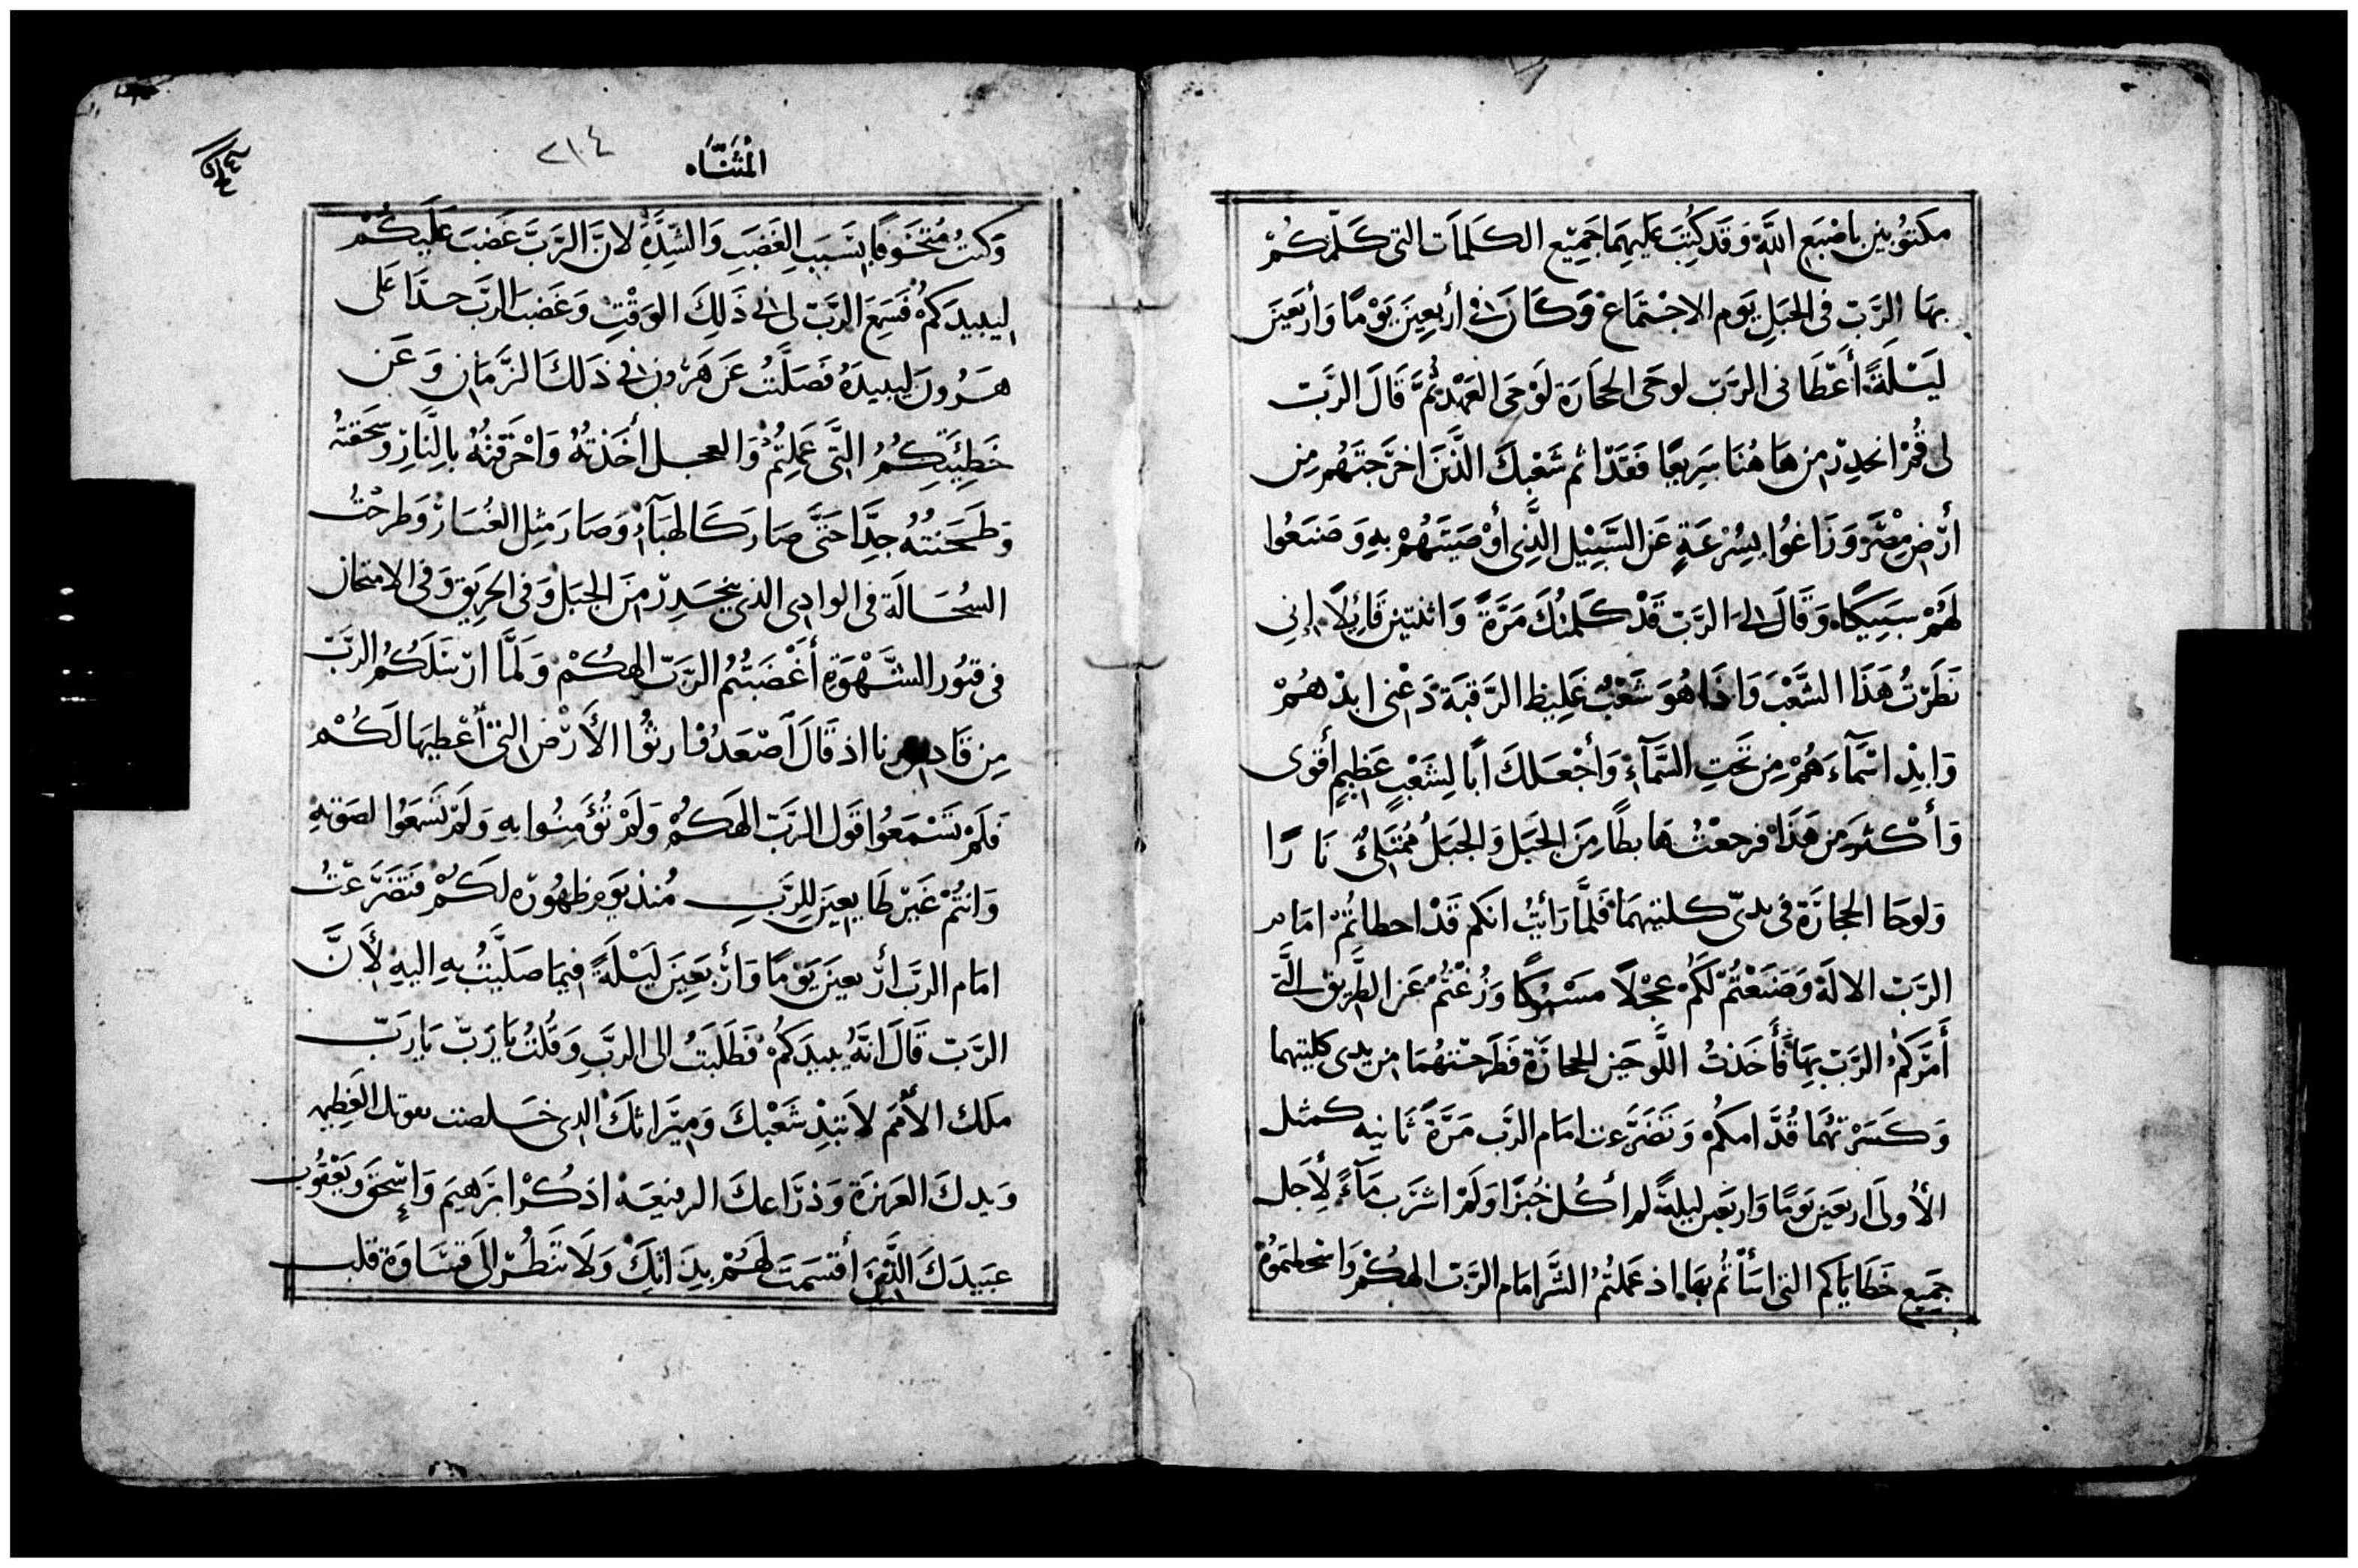 مكتوبين باصبع الله وقد كتب عليهما جميع الكلمات التي كلمكم
بها الرب في الجبل يوم الاجتماع وكان في أربعين يومًا وأربعين
ليلة أعطاني الرب لوحي الحجارة لوحي العهد ثم قال الرب
لي قم انحدر من هاهنا سريعًا فقد اثم شعبك الذين اخرجتهم من
أرض مصر وزاغوا بسرعة عن السبيل الذي أوصيتهم به وصنعوا
لهم سبيكا وقال لي الرب قد كلمتك مرة واثنتين قائلًا اني
نظرت هذا الشعب واذا هو شعب غليظ الرقبة دعني ابدهم
وابد اسماءهم من تحت السماء وأجعلك ابا لشعب عظيم أقوى
وأكثر من هذا فرجعت هابطًا من الجبل والجبل ممتلئ نارًا
ولوحا الحجارة في يدي كلتيهما فلما رأيت انكم قد اخطاتم امام
الرب الاله وصنعتم لكم عجلًا مسبوكًا وزغتم عن الطريق التي
أمركم الرب بها فأخذت اللوحين الحجارة فطرحتهما من يدي كلتيهما
وكسرتهما قدامكم وتضرعت امام الرب مرة ثانيه كمثل
الأولى اربعين يومًا واربعين ليلة لم أكل خبزًا ولم اشرب ماءً لأجل
جميع خطاياكم التي اسأتم بها اذ عملتم الشر امام الرب الهكم واسخطتموه
المثناه
٢١٤
وكنت متخوفا بسبب الغضب والشدة لان الرب غضب عليكم
ليبيدكم فسمع الرب لي في ذلك الوقت وغضب الرب جدًا على
هرون ليبيده فصليت عن هرون في ذلك الزمان وعن
خطيئتكم التي عملتم والعجل أخذته واحرقته بالنار وسحقته
وطحنته جدًا حتى صار كالهباء وصار مثل الغبار وطرحت
السحالة في الوادي الذي ينحدر من الجبل وفي الحريق وفي الامتحان
في قبور الشهوة أغضبتم الرب الهكم ولما ارسلكم الرب
من قادس برنا اذ قال اصعدوا فارثوا الأرض التي أعطيها لكم
فلم تسمعوا قول الرب الهكم ولم تؤمنوا به ولم تسمعوا لصوته
وانتم غير طايعين للرب منذ يوم ظهوره لكم فتضرعت
امام الرب أربعين يومًا وأربعين ليلة فيما صليت به اليه لأن
الرب قال انه يبيدكم فطلبت الى الرب وقلت يا رب يا رب
ملك الأمم لا تبد شعبك وميراثك الذي خلصت بقوتك العظيمه
ويدك العزيزة وذراعك الرفيعه اذكر ابرهيم واسحق ويعقوب
عبيدك الذين أقسمت لهم بذاتك ولا تنظر الى قساوة قلب